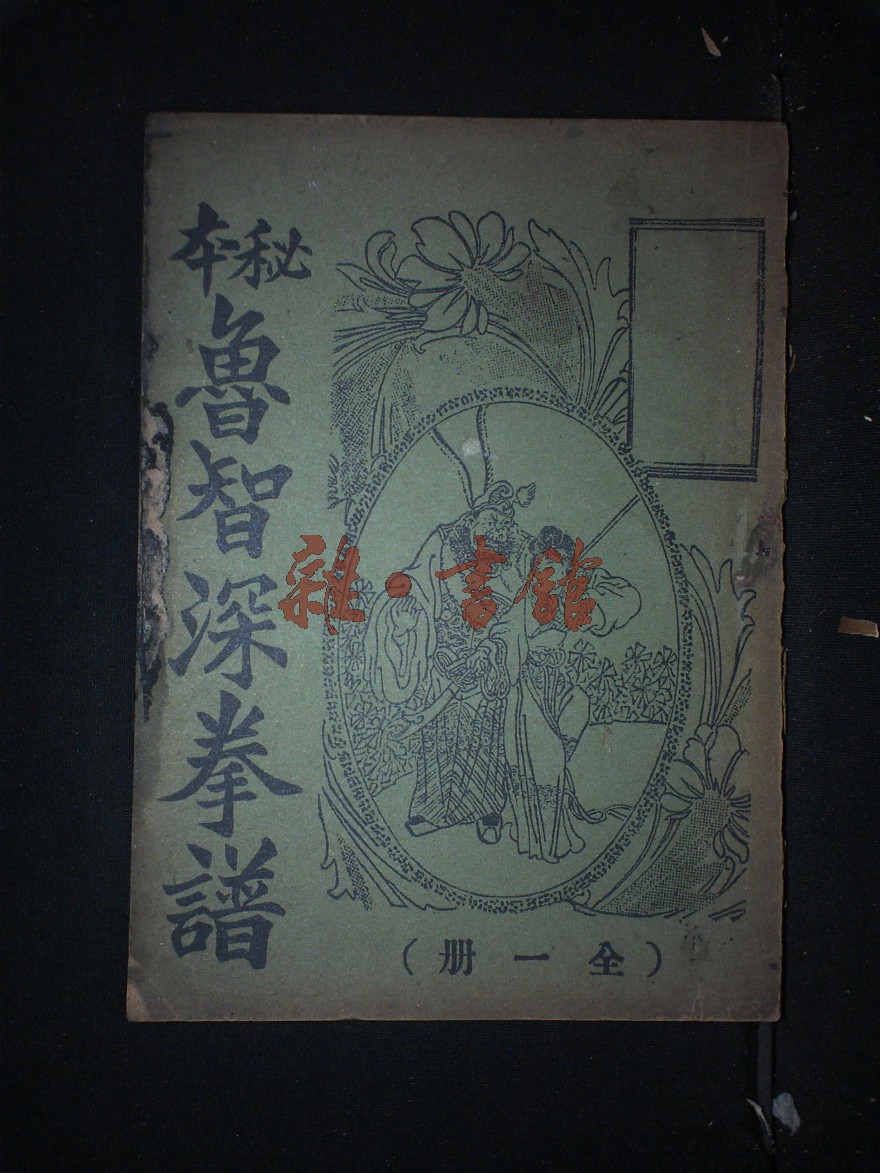 秘本
魯智深拳譜
（全一册）
雜·書館